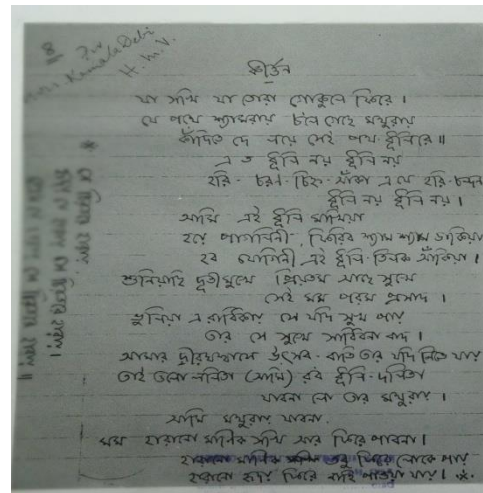 8
For
Kamala Debi
H. M. V.
কীর্ত্তন
যা সখি যা তোরা গোকুলে ফিরে।
যে পথে শ্যামরায় চলে গেছে মথুরায়
কাঁদিতে দে লয়ে সেই পথ-ধূলিরে॥
এ ত ধূলি নয় ধূলি নয়
হরি-চরণ-চিহ্ন-আঁকা এ যে হরি-চন্দন
ধূলি নয় ধূলি নয়।
আমি এই ধূলি মাখিয়া
হব পাগলিনী, ফিরিব শ্যাম শ্যাম ডাকিয়া
হব যোগিনী এই ধূলি-তিলক আঁকিয়া।
শুনিয়াছি দূতীমুখে প্রিয়তম আছে সুখে
সেই মম পরম প্রসাদ।
ভুলিয়া এ রাধিকায় সে যদি সুখ পায়
তার সে সুখে সাধিবনা বাদ।
আমার দীরঘশ্বাসে উৎসব-বাতি তার যদি নিভে যায়
তাই ওলো ললিতা (আমি) রব ধূলি-দলিতা
যাবনা লো তার মথুরায়।
আমি মথুরায় যাবনা
মম হারানো মাণিক সখি আর ফিরে পাবনা।
হারানো মাণিক তবু ফিরে লোকে পায়
হারানো হৃদয় ফিরে নাহি পাওয়া যায়।